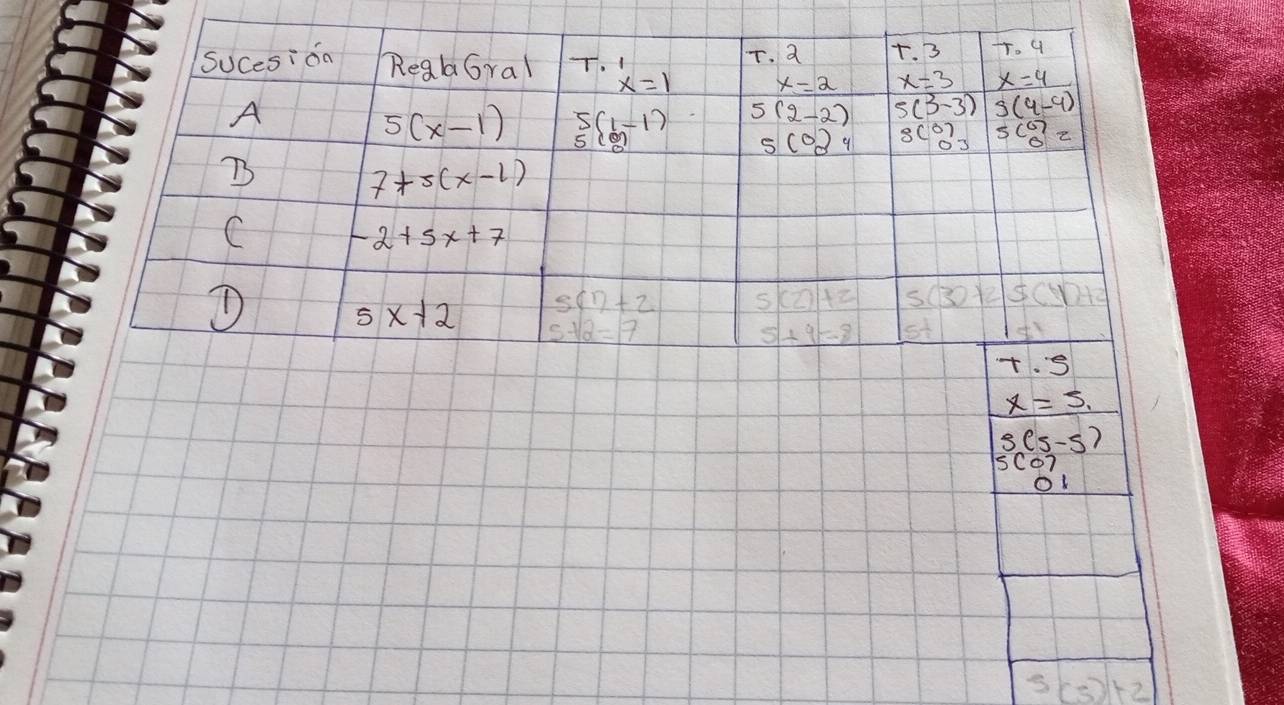 Sucesión Regla Gral T. 1 T. 2 T. 3 T. 4
x=1 x=2 x=3 x=4
A 5(x-1) 5(1-1) 5(2-2) 5(3-3) 5(4-4)
5(0) 5(0) 5(0) 5(0)
B 7+5(x-1)
C -2+5x+7
D 5x+2 5(1)+2 5(2)+2 5(3)+2 5(4)+2
5+2=7 5+4=9 5+ 5+
T. 5
x=5.
5(5-5)
5(0)
01
5(5)+2